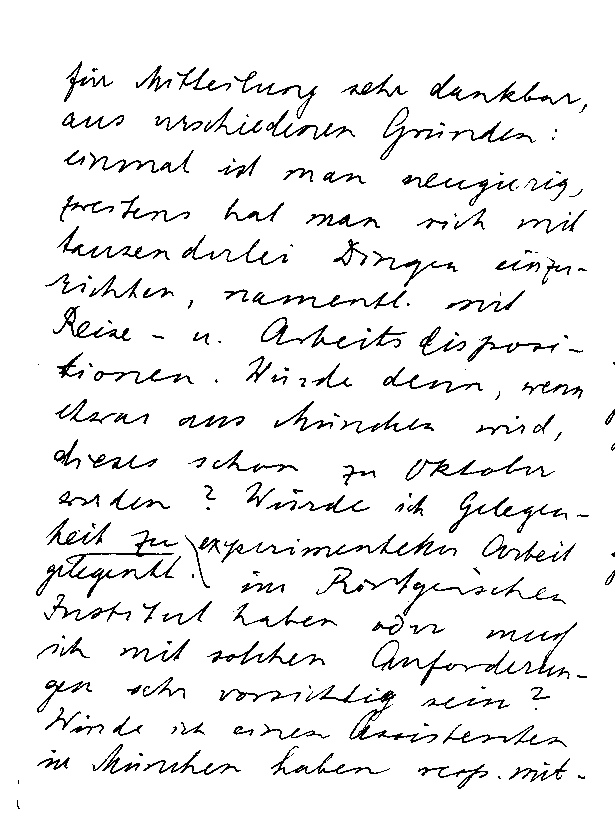 für Mitteilung sehr dankbar,
aus verschiedenen Gründen:
einmal ist man neugierig,
zweitens hat man sich mit
tausenderlei Dingen einzu-
richten, namentl. mit
Reise- u. Arbeitsdisposi-
tionen. Würde denn, wenn
etwas aus München wird,
dieses schon zu Oktober
werden? Würde ich Gelegen-
heit zu experimenteller Arbeit
gelegentl. im Röntgenschen
Institut haben oder muß
ich mit solchen Anforderun-
gen sehr vorsichtig sein?
Würde ich einen Assistenten
in München haben resp. mit-